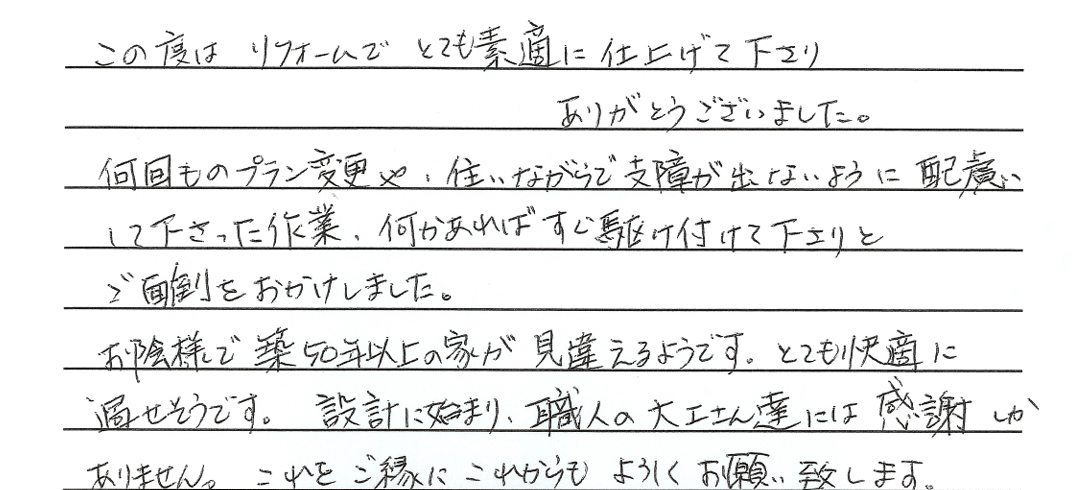 この度は リフォームで とても素適に仕上げて下さり
ありがとうございました。
何回ものプラン変更や、住いながらで支障が出ないように 配慮い
して下さった作業、何かあればすぐ駆け付けて下さりと
ご面倒をおかけしました。
お陰様で築50年以上の家が見違えるようです。とても快適に
過せそうです。 設計に始まり、職人の大工さん達には感謝しか
ありません。 これをご縁にこれからもよろしくお願い致します。